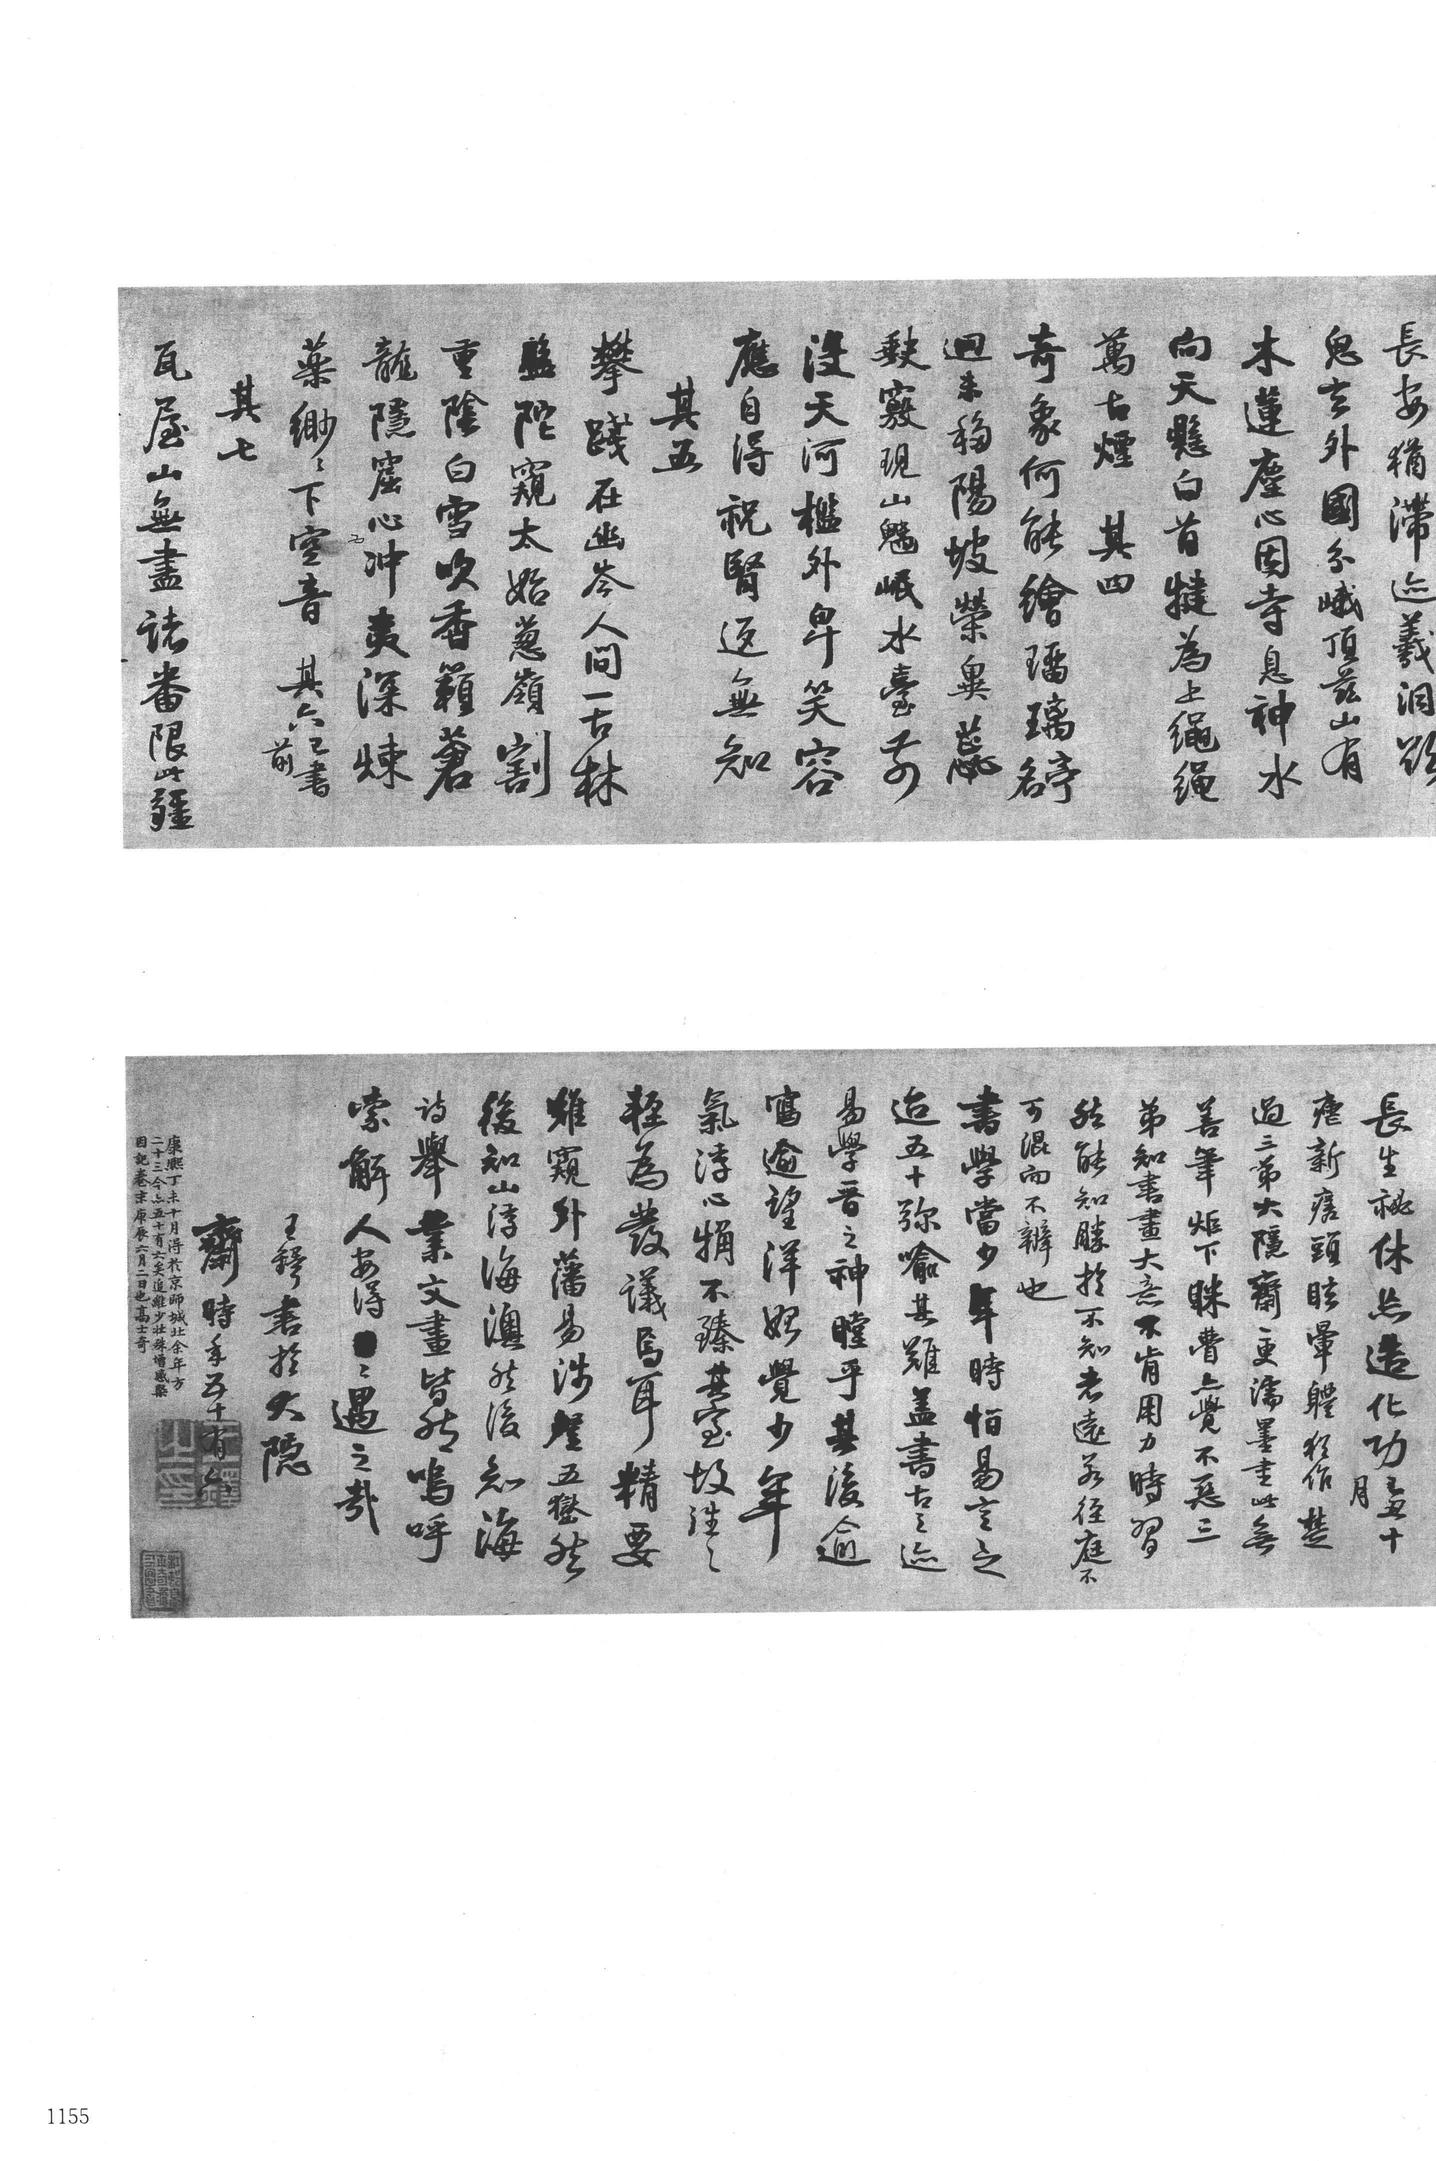 長安猶滯迹羲洞
鬼玄外國分峨頂茲山有
木蓮塵心因寺息神水
向天懸白首犍為上繩繩
萬古煙 其四
奇象何能繪璢璃亭名
迴未移陽坡榮異蕊
竅現山魑岷水臺前
沒天河檻外卑笑容
應自得祝腎返無知
其五
攀踐在幽岑人間一古林
盤陀窺太始蔥嶺割
重陰白雪吹香籟蒼
龍隱窟心冲夷深煉
藥緲緲下空音 其六已書
前
其七
瓦屋山無盡諸番限此疆
長生祕休炁造化功五十
月
瘧新瘥頭眩暈體猶作楚
過三弟大隱齋更濡墨書此無
善筆炬下眯費亦覺不惡三
弟知書畫大意不肯用力時習
然能知勝於不知者遠若徑庭不
可混而不辨也
書學當少年時怕易言之
迨五十彌喻其難蓋書古之迹
易學晉之神瞠乎其後俞
寫逾望洋始覺少年
氣浮心猾不臻其室故往往
輕為發議焉耳精要
雖窺外藩易涉登五嶽然
後知山浮海澳然後知海
詩舉業文畫皆然嗚呼
索解人安得遇之哉
王鐸書於大隱
齋時年五十有
康熙丁未十月得於京師城北余年方
二十三今亦五十有六矣追維少壯殊增感槩
因記卷末庚辰六月二日也高士奇
1155